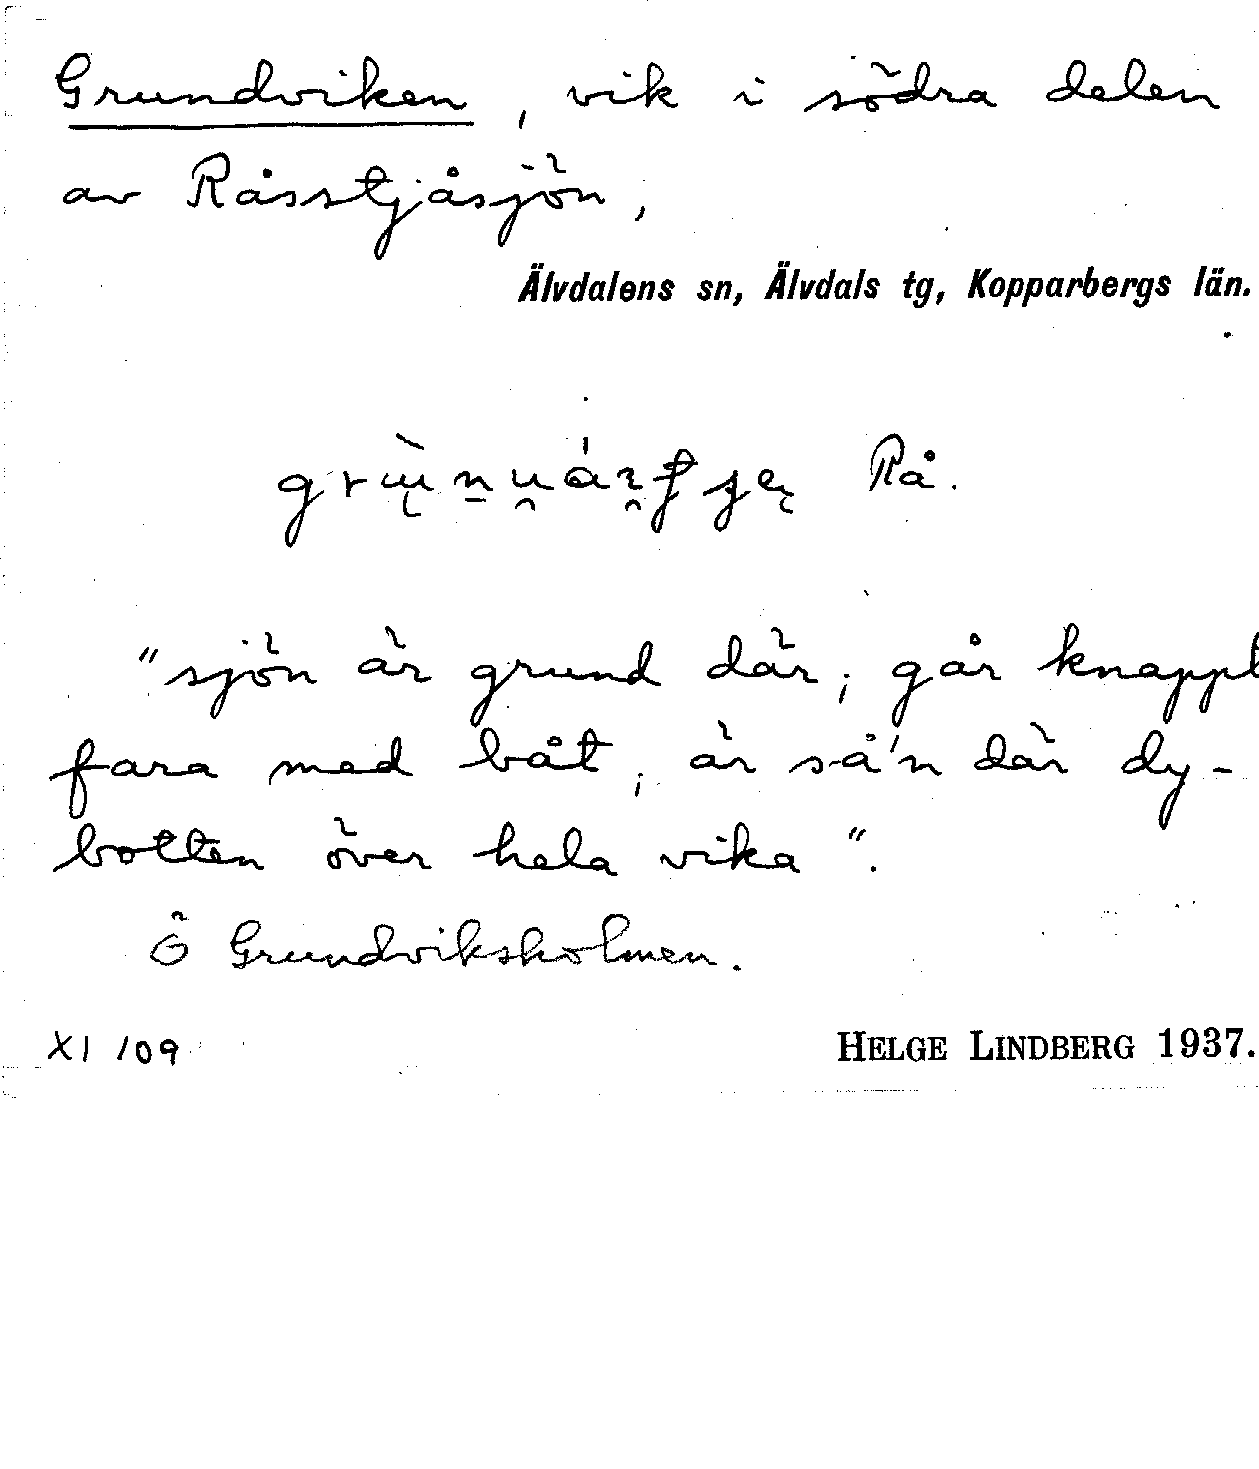 Grundviken, vik i södra delen
av Råsstjåsjön,
Älvdalens sn, Älvdals tg, Kopparbergs län.
Rå.
"sjön är grund där; går knappt
fara med båt; är så'n där dy-
botten över hela vika".
Ö Grundviksholmen.
XI /09
HELGE LINDBERG 1937.